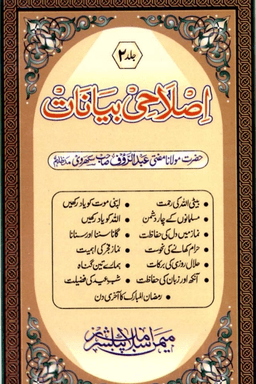 جلد ۲
اصلاحی بیانات
حضرت مولانا مفتی عبدالرؤف صاحب سکھروی مدظلہم
بیٹی اللہ کی رحمت • اپنی موت کو یاد رکھیں
مسلمانوں کے چار دشمن • اللہ کو یاد رکھیں
نماز میں دل کی حفاظت • گانا سننا اور سنانا
حرام کھانے کی نحوست • نماز فجر کی اہمیت
حلال روزی کی برکات • ہمارے تین گناہ
آنکھ اور زبان کی حفاظت • شب عید کی فضیلت
رمضان المبارک کا آخری دن
میمن اسلامک پبلشرز